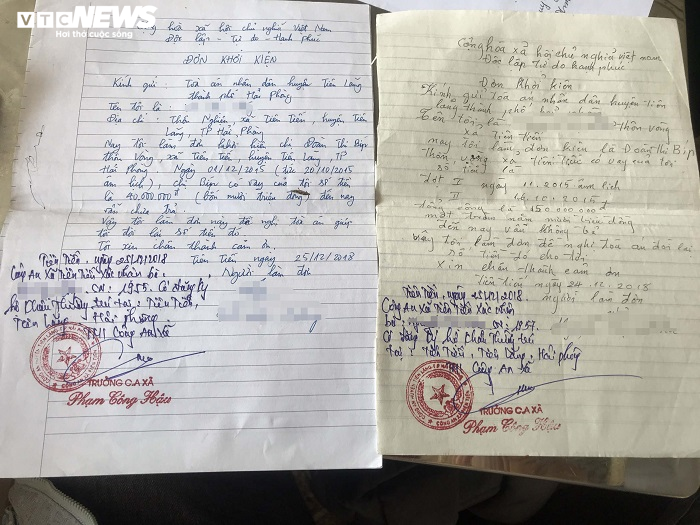 VTC NEWS
Hơi thở cuộc sống
Cộng hòa xã hội chủ nghĩa Việt Nam
Độc lập - Tự do - Hạnh phúc
ĐƠN KHỞI KIỆN
Kính gửi: Toà án nhân dân huyện Tiên Lãng
thành phố Hải Phòng
Tên tôi là:
Địa chỉ: Thôn Nghiện, xã Tiên Tiến, huyện Tiên
Lãng, TP Hải Phòng
Nay tôi làm đơn khởi kiện chị Đoàn Thị Bịp
thôn Vông, xã Tiên Tiến, huyện Tiên Lãng, TP
Hải Phòng. Ngày 01/12/2015 (tức 20/10/2015
âm lịch), chị Bịp có vay của tôi số tiền
là 40.000.000đ (bốn mươi triệu đồng) đến nay
vẫn chưa trả.
Vậy tôi làm đơn này đề nghị toà án giúp
tôi đòi lại số tiền đó
Tôi xin chân thành cảm ơn.
Tiên Tiến ngày 25/12/2018
Người làm đơn
Tiên Tiến, ngày 25/12/2018
Công An Xã Tiên Tiến Xác nhận
bà: SN: 1955. Có đăng ký
hộ khẩu thường trú tại: Tiên Tiến,
Tiên Lãng, Hải phòng
TM Công An Xã
TRƯỞNG C.A XÃ
Phạm Công Hậu
Cộng hòa xã hội chủ nghĩa việt nam
Độc lập tự do hạnh phúc
Đơn khởi kiện
Kính gửi tòa án nhân dân huyện tiên
lãng thành phố hải phòng
Tên tôi là thôn vông
xã tiên tiến
nay tôi làm đơn kiện là Đoàn thị Bịp
thôn vông xã tiên tiến có vay của tôi
số tiền là
đợt I ngày 11.2015 âm lịch
đợt II 16.10.2015
tổng cộng là 150.000.000đ
một trăm năm mươi triệu đồng
đến nay vẫn không trả
vậy tôi làm đơn đề nghị toà án đòi lại
số tiền đó cho tôi
xin chân thành cảm ơn
tiên tiến ngày 24.12.2018
người làm đơn
Tiên Tiến, ngày 25/12/2018
Công An Xã Tiên Tiến Xác nhận
bà: SN: 1957.
Có đăng ký hộ khẩu thường trú
tại: Tiên Tiến, Tiên Lãng, Hải phòng
TM Công An Xã
TRƯỞNG C.A XÃ
Phạm Công Hậu